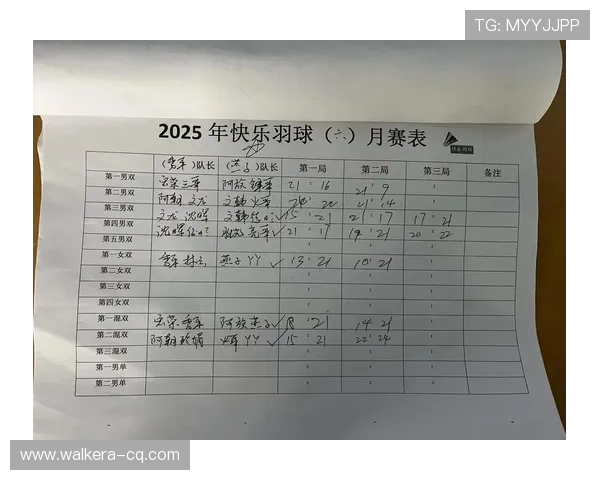 TG: MYYJJPP
2025 年快乐羽球（六）月赛表
快乐羽球
（秀平）队长 （燕子）队长 第一局 第二局 第三局 备注
第一男双 宏荣 三平 阿族 锦平 21 : 16 21 : 9 :
第二男双 阿朝 文龙 文韩 火平 : 22 21 : 14 :
第三男双 文龙 沈晖 文韩 15 : 21 21 : 17 17 : 21
第四男双 沈晖 21 : 17 19 : 21 20 : 22
第五男双 : : :
第一女双 秀平 燕子 YY ✓ 13 : 21 10 : 21 :
第二女双 : : :
第三女双 : : :
第四女双 : : :
第一混双 宏荣 秀平 阿族 燕子 ✓ 18 : 21 14 : 21 :
第二混双 阿朝 YY ✓ 15 : 21 22 : 24 :
第三混双 : : :
第一男单 : : :
第二男单 : : :
www.walkera-cq.com